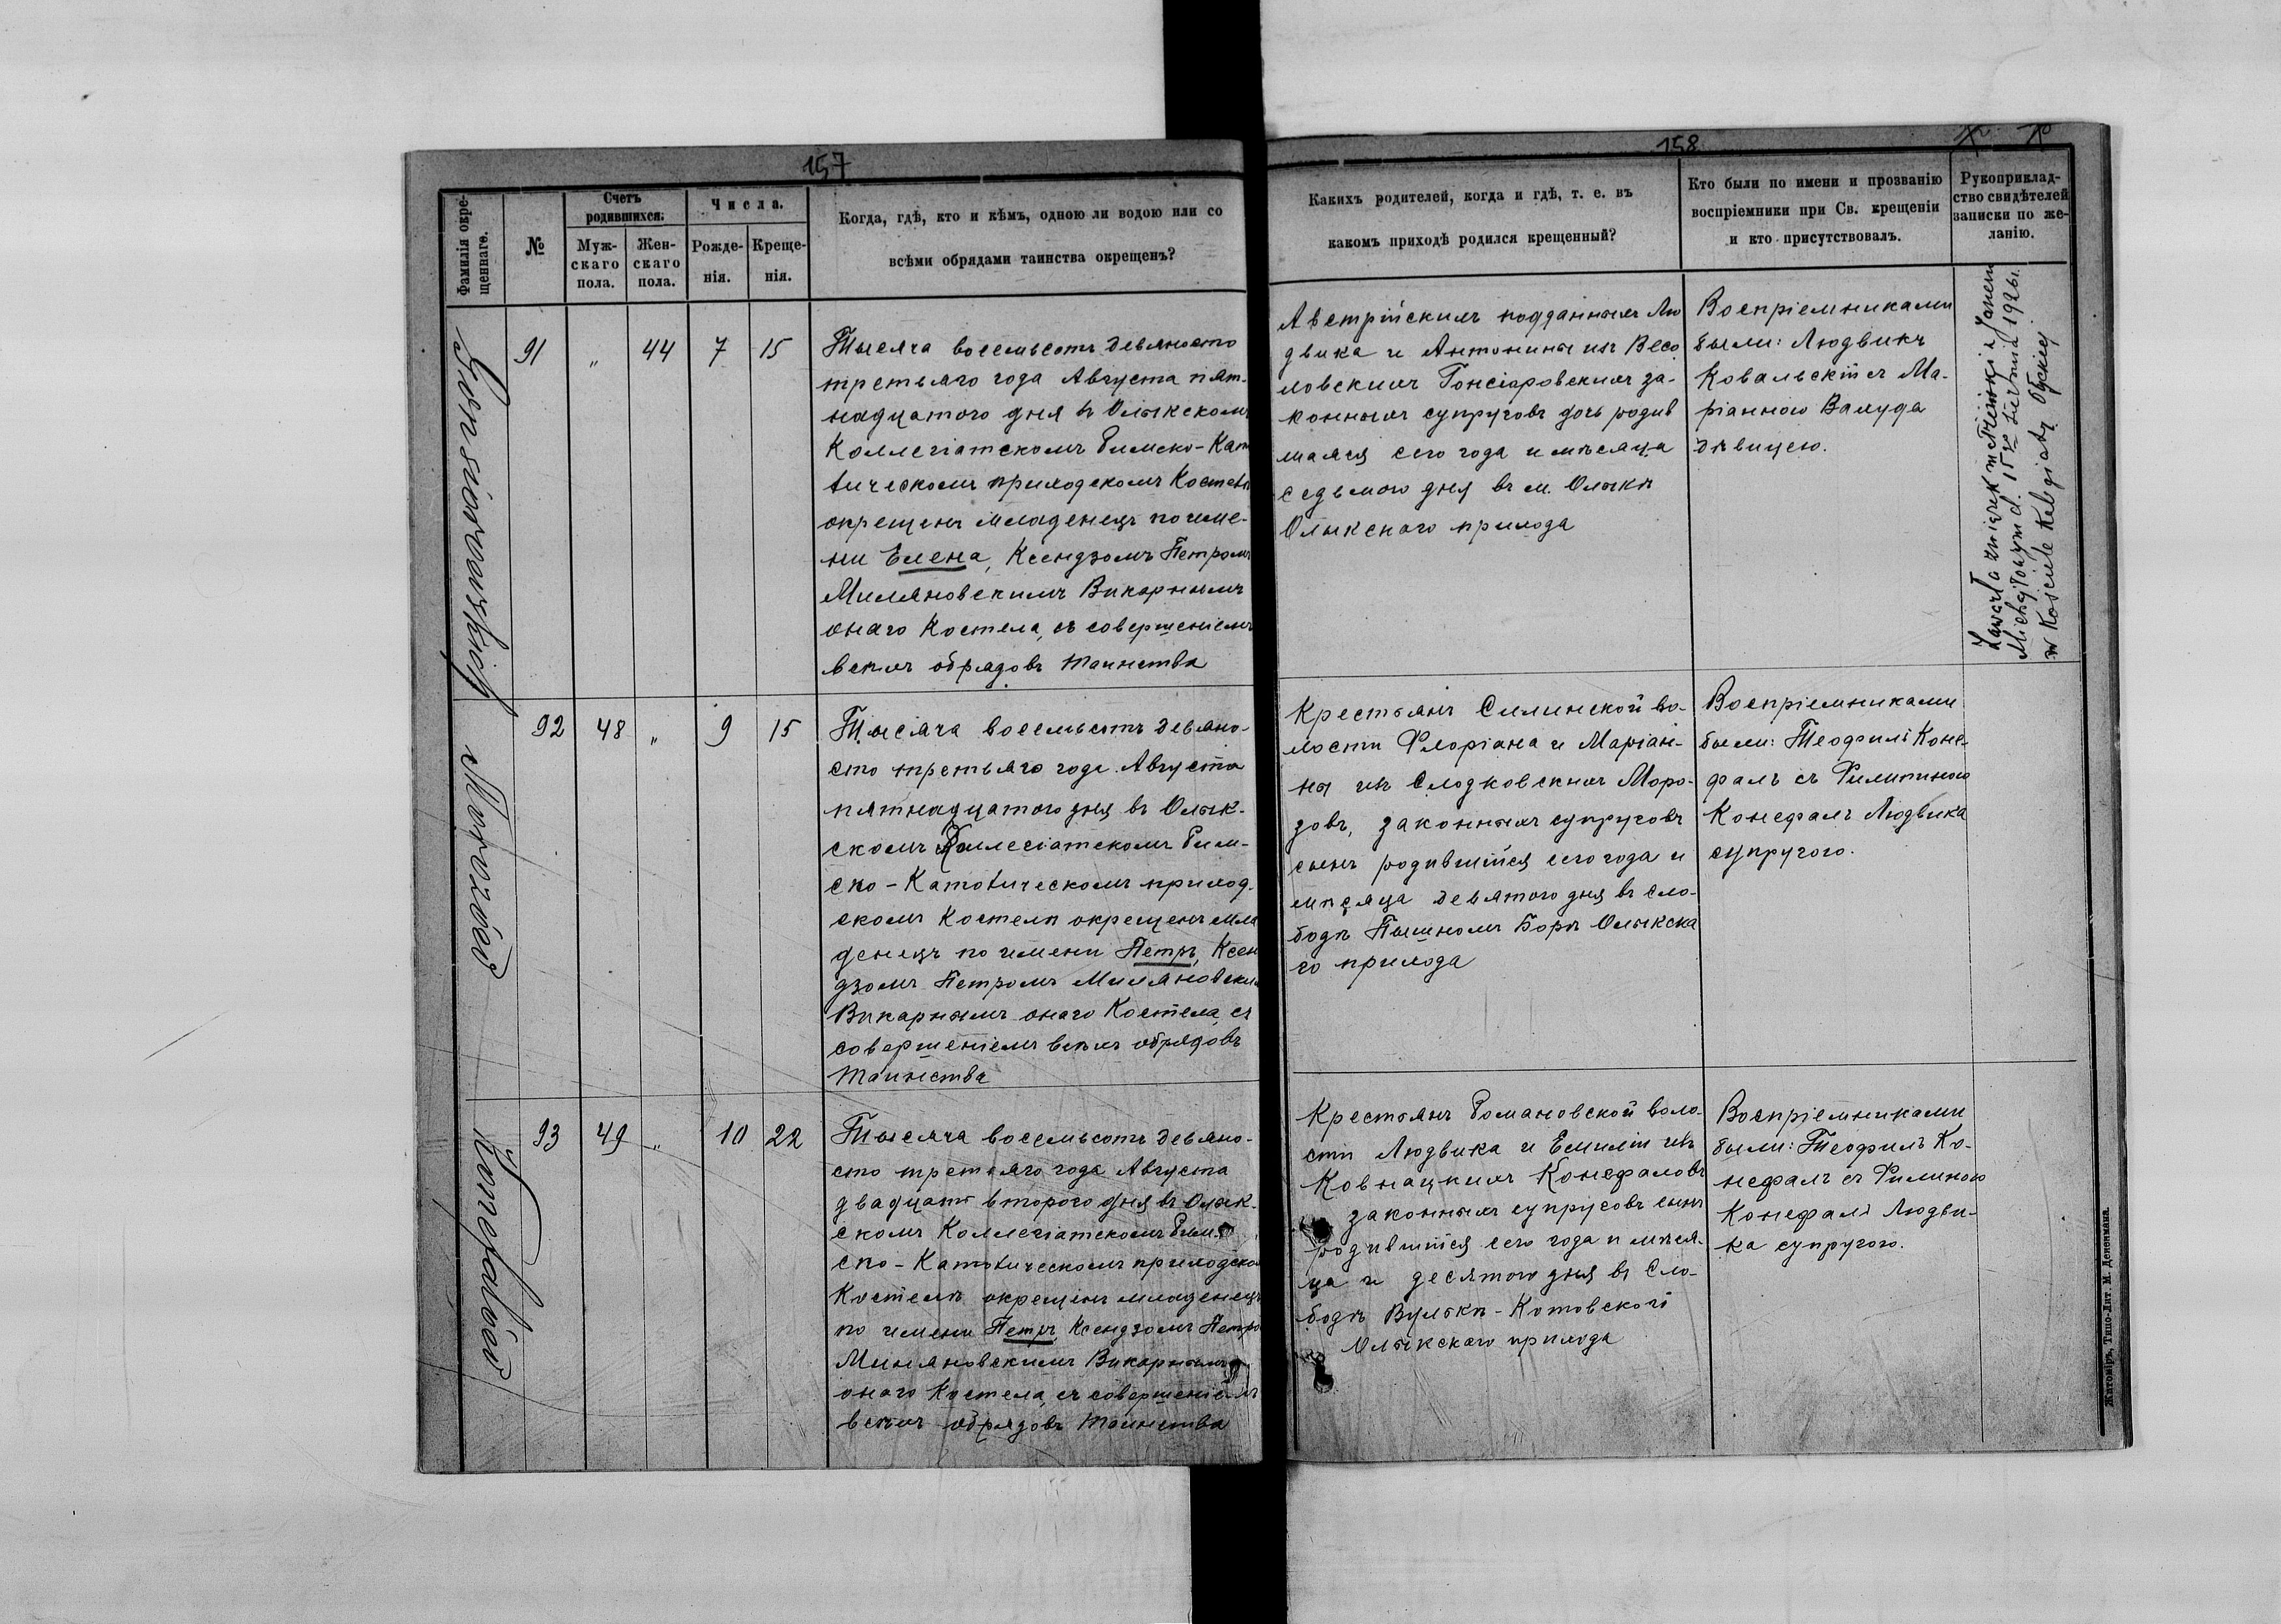 157
Фамилія окре-
щеннаго.
№
Счетъ
родившихся:
Муж-
скаго
пола.
Жен-
скаго
пола.
Числа.
Рожде-
нія.
Креще-
нія.
Когда, гдѣ, кто и кѣмъ, одною ли водою или со
всѣми обрядами таинства окрещенъ?
91 " 44 7 15
Тысяча восемьсотъ девяносто
третьяго года Августа пят-
надцатого дня въ Олыкскомъ
Коллегіатскомъ Римско-Като
лическомъ приходскомъ Костелѣ
окрещенъ младенецъ по име-
ни Елена, Ксендзомъ Петромъ
Миляновскимъ Викарнымъ
онаго Костела, съ совершеніемъ
всѣхъ обрядовъ таинства
Morozów
92 48 " 9 15
Тысяча восемьсотъ девяно-
сто третьяго года Августа
пятнадцатого дня въ Олык-
скомъ Коллегіатскомъ Рим-
ско-Католическомъ приход-
скомъ Костелѣ окрещенъ мла
денецъ по имени Петръ, Ксен
дзомъ Петромъ Миляновским
Викарнымъ онаго Костела, съ
совершеніемъ всѣхъ обрядовъ
таинства
Konefałów
93 49 " 10 22
Тысяча восемьсотъ девяно-
сто третьяго года Августа
двадцать второго дня въ Олык-
скомъ Коллегіатскомъ Рим-
ско-Католическомъ приходско
Костелѣ окрещенъ младенецъ
по имени Петръ, Ксендзомъ Петро
Миляновскимъ Викарнымъ
онаго Костела, съ совершеніемъ
всѣхъ обрядовъ таинства
158
Какихъ родителей, когда и гдѣ, т. е. въ
какомъ приходѣ родился крещенный?
Кто были по имени и прозванію
воспріемники при Св. крещеніи
и кто присутствовалъ.
Рукоприклад-
ство свидѣтелей
записки по же-
ланію.
Австрійскихъ подданныхъ Лю
двика и Антонины изъ Весо
ловскихъ Гонсіоровскихъ за-
конныхъ супруговъ дочь родив
шаяся сего года и мѣсяца
седьмого дня въ м. Олыкѣ
Олыкскаго прихода
Воспріемниками
были: Людвикъ
Ковальскій съ Ма-
ріанною Валуда
дѣвицею.
Zawarła związek małżeński z Janem
1926 r.
w Kościele Kolegiaty Ołyckiej
Крестьянъ Силинской во-
лости Флоріана и Маріан-
ны изъ Слодковскихъ Моро-
зовъ, законныхъ супруговъ
сынъ родившійся сего года и
мѣсяца девятого дня въ сло-
бодѣ Пышномъ Борѣ Олыкска
го прихода
Воспріемниками
были: Теофилъ Коне-
фалъ съ Филипиною
Конефалъ Людвика
супругою.
Крестьянъ Романовской воло-
сти Людвика и Емиліи изъ
Ковнацкихъ Конефаловъ
законныхъ супруговъ сынъ
родившійся сего года и мѣся-
ца и десятого дня въ Сло-
бодѣ Вулькѣ-Котовской
Олыкскаго прихода
Воспріемниками
были: Теофилъ Ко-
нефалъ съ Филиною
Конефалъ Людви-
ка супругою.
Житоміръ, Типо-Лит. М. Дененмана.